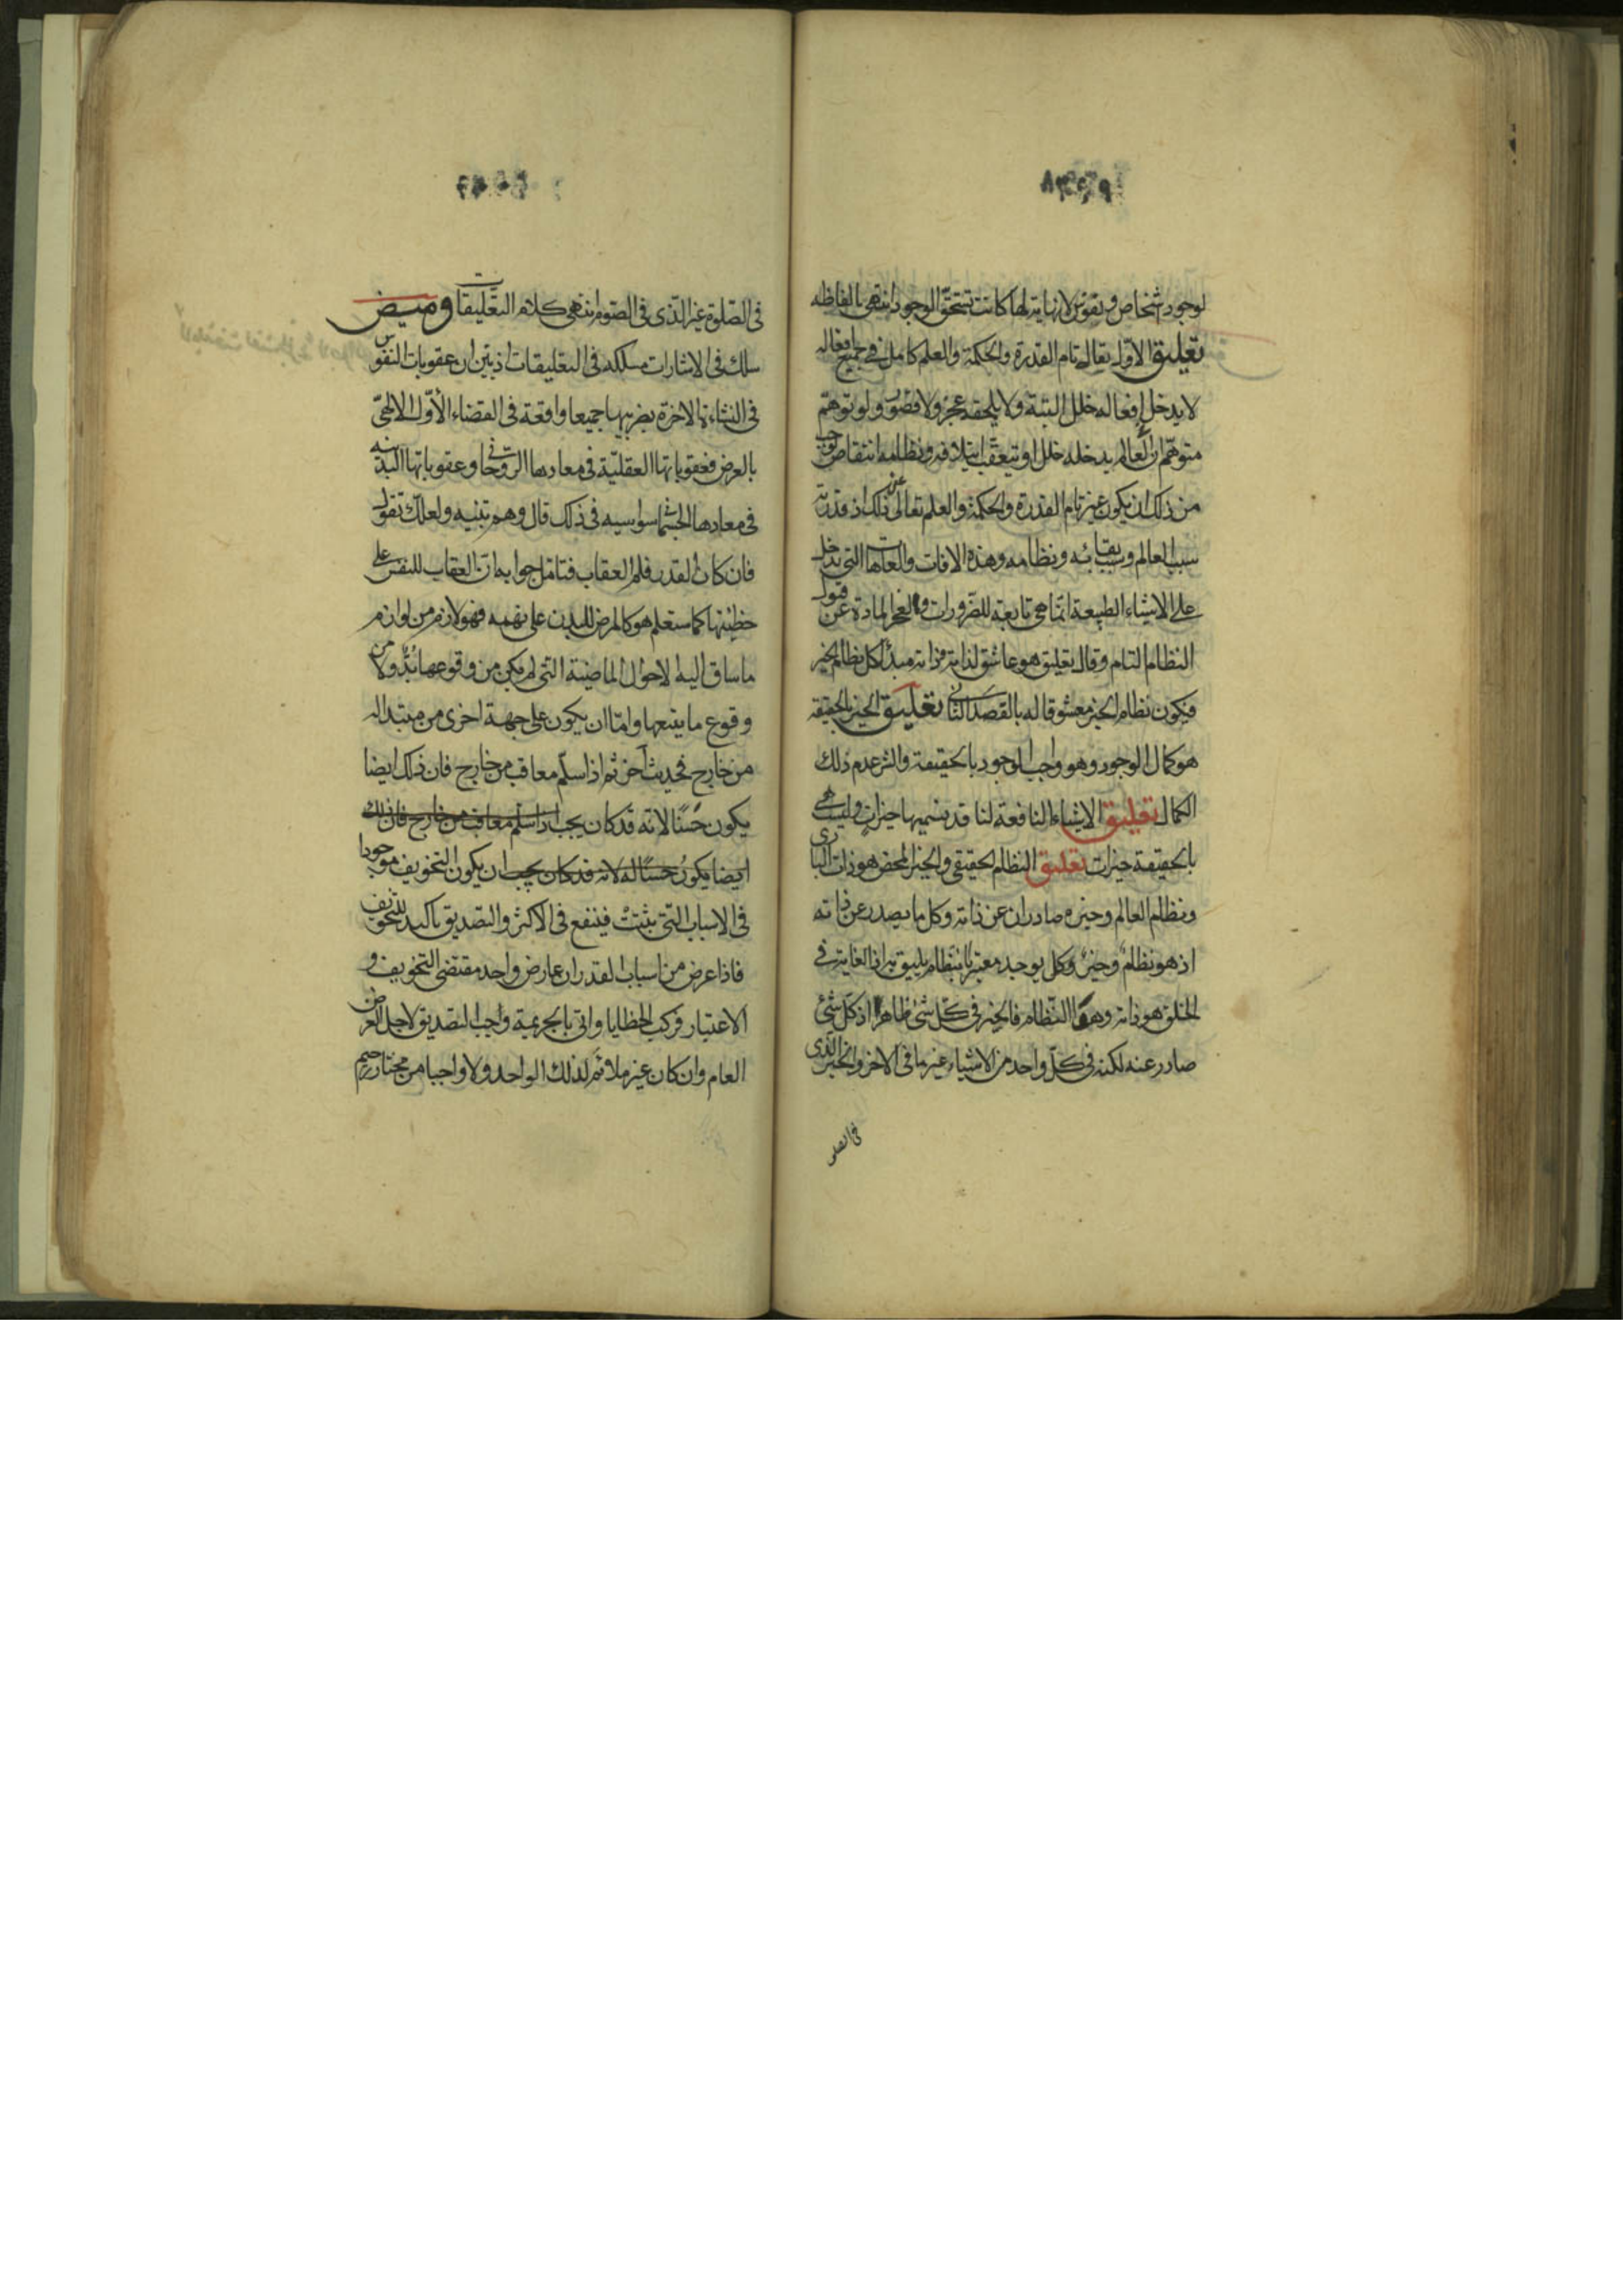 لوجود اشخاص ونفوس لا نهاية لها كانت تستحق الوجود انتهى بالفاظه
تعليق الاول تعالى تام القدرة والحكمة والعلم كامل في جميع افعاله
لا يدخل افعاله خلل البتة ولا يلحقه عجز ولا قصور ولو توهم
متوهم ان العالم يدخله خلل او يتعقب ايتلافه ونظامه انتقاض لوجب
من ذلك ان يكون غير تام القدرة والحكمة والعلم تعالى عن ذلك اذ قدرته
سبب العالم وسبب بقائه ونظامه وهذه الافات والعاهات التي تدخل
على الاشياء الطبيعة انما هي تابعة للضرورات ولعجز المادة عن قبول
النظام التام وقال تعليق هو عاشق لذاته فذاته مبدأ كل نظام الخير
فيكون نظام الخير معشوقا له بالقصد الثاني تعليق الخير بالحقيقة
هو كمال الوجود وهو واجب الوجود بالحقيقة والشر عدم ذلك
الكمال تعليق الاشياء النافعة لنا قد نسميها خيرات وليست هي
بالحقيقة خيرات تعليق النظام الحقيقي والخير المحض هو ذات الباري
ونظام العالم وخيره صادران عن ذاته وكل ما يصدر عن ذاته
اذ هو نظام وخير وكل يوجد معتبرا بنظام يليق به اذ الغاية في
الخلق هو ذاته وهذا النظام فالخير في كل شئ ظاهرا اذ كل شئ
صادر عنه لكنه في كل واحد من الاشياء غير ما في الاخر والخير الذي
في الصلو
في الصلوة غير الذي في الصوم انتهى كلام التعليقات وميض
سلك في الاشارات مسلكه في التعليقات اذ تبين ان عقوبات النفوس
في النشاءة الاخرة بضربيها جميعا واقعة في القضاء الاول الالهي
بالعرض فعقوباتها العقلية في معادها الروحاني وعقوباتها البدنية
في معادها الجسماني سواسيه في ذلك قال وهم وتنبيه ولعلك تقول
فان كان القدر فلم العقاب فتامل جوابه ان العقاب للنفس على
خطيئتها كما ستعلم هو كالمرض للبدن على نهمه فهو لازم من لوازم
ما ساق اليه الاحوال الماضية التي لم يكن من وقوعها بد ولا من
وقوع ما يتبعها واما ان يكون على جهة اخرى من مبتدا له
من خارج فحديث آخر ثم اذا سلم معاقب من خارج فان ذلك ايضا
يكون حسنا لانه قد كان يجب اذا سلم معاقب من خارج فان ذلك
ايضا يكون حسنا له لانه قد كان يجب ان يكون التخويف موجودا
في الاسباب التي تثبت فينفع في الاكثر والتصديق تاكيد للتخويف
فاذا عرض من اسباب القدر ان عارض واحد مقتضى التخويف و
الاعتبار فركب الخطايا واتى بالجريمة وجب التصديق لاجل الغرض
العام وان كان غير ملائم لذلك الواحد ولا واجبا من مختار رحيم